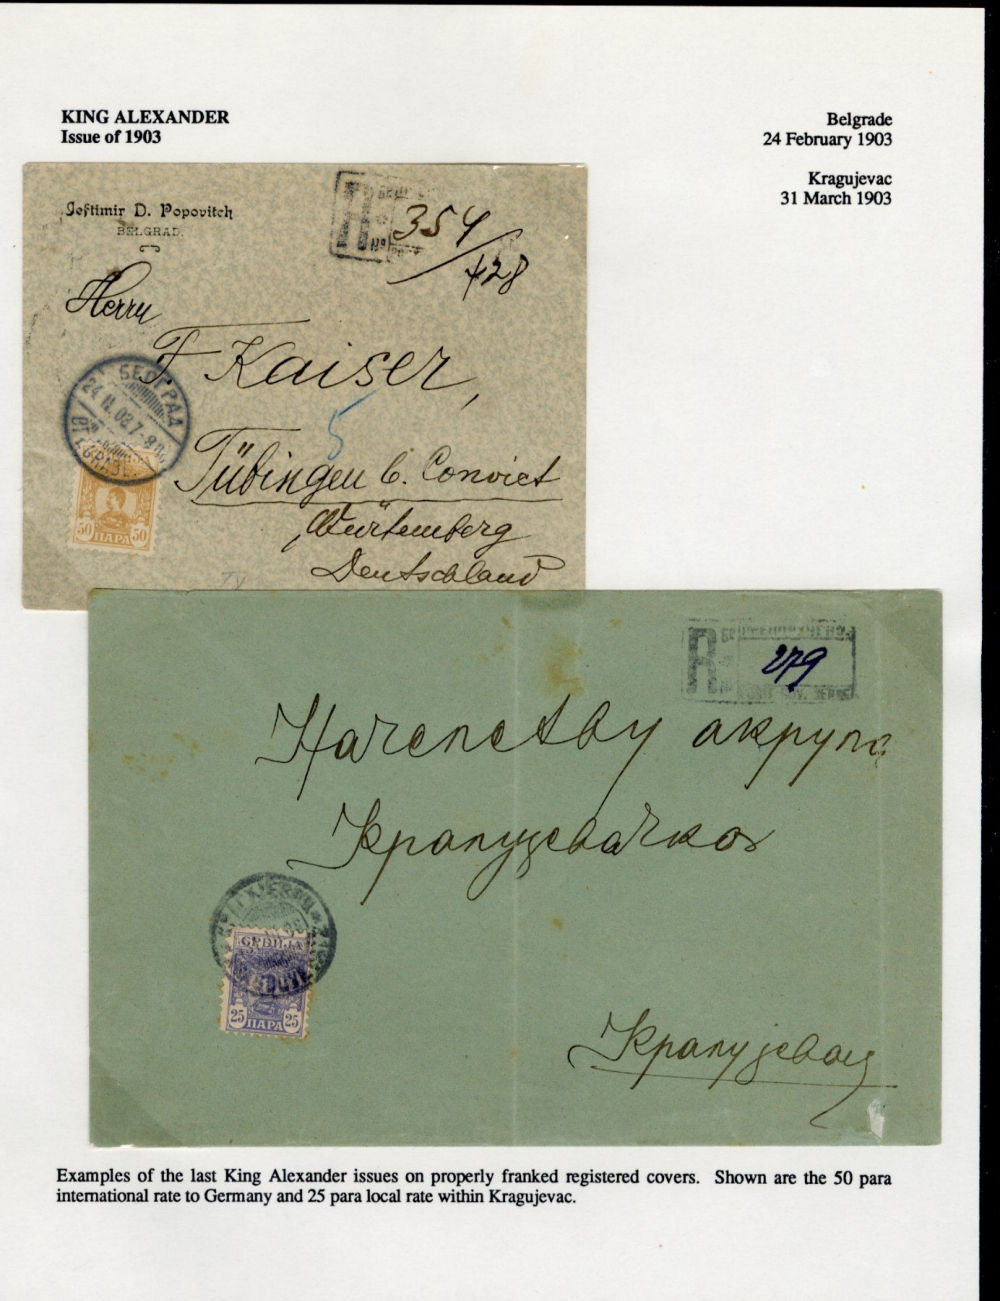 KING ALEXANDER
Issue of 1903
Belgrade
24 February 1903
Kragujevac
31 March 1903
Jeftimir D. Popovitch
BELGRAD.
R
No
354
428
Herrn
F. Kaiser,
5
Tübingen b. Convict
Württemberg
Deutschland
БЕОГРАД
24 II. 03. 7-8
BELGRADE
50 ПАРА 50
R
279
Начелству округа
Крагујевачког
СРБИЈА
25 ПАРА 25
Крагујевац
Examples of the last King Alexander issues on properly franked registered covers. Shown are the 50 para
international rate to Germany and 25 para local rate within Kragujevac.